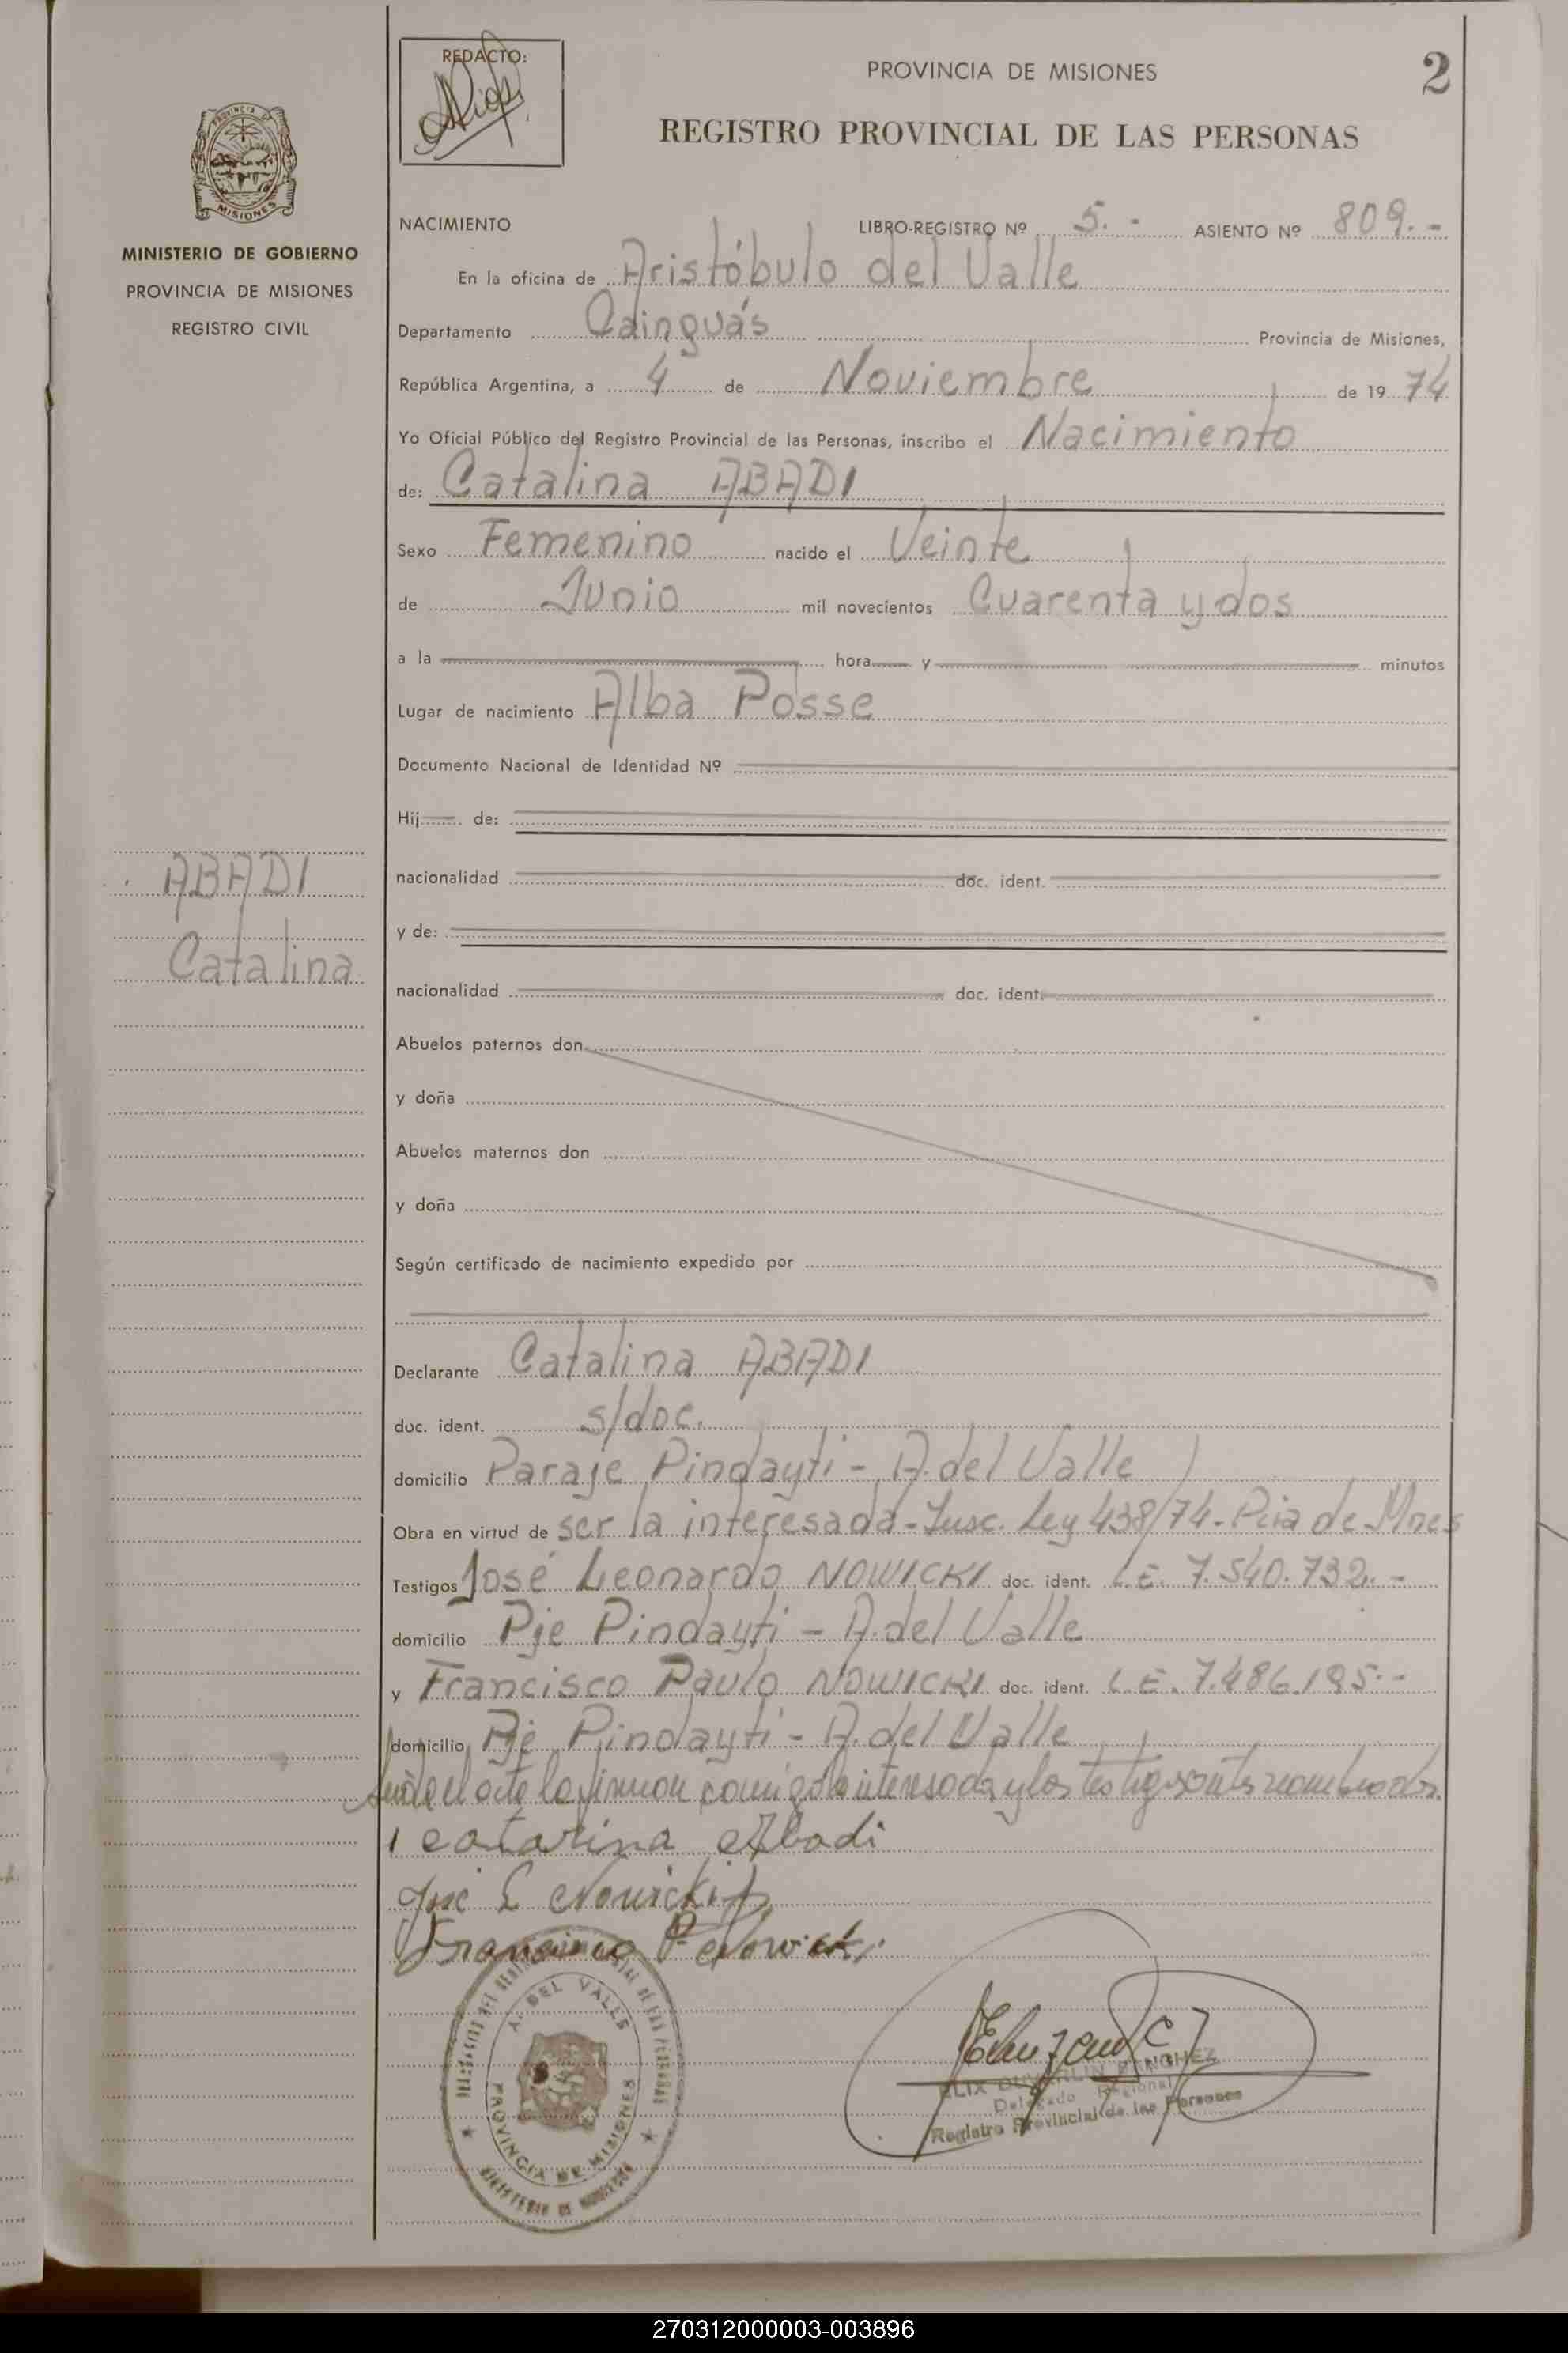 REDACTO:
PROVINCIA DE MISIONES
2
REGISTRO PROVINCIAL DE LAS PERSONAS
PROVINCIA DE
MISIONES
MINISTERIO DE GOBIERNO
PROVINCIA DE MISIONES
REGISTRO CIVIL
NACIMIENTO LIBRO-REGISTRO Nº 5.- ASIENTO Nº 809.-
En la oficina de Aristóbulo del Valle
Departamento Cainguás Provincia de Misiones,
República Argentina, a 4 de Noviembre de 1974
Yo Oficial Público del Registro Provincial de las Personas, inscribo el Nacimiento
de: Catalina ABADI
Sexo Femenino nacido el Veinte
de Junio mil novecientos Cuarenta y dos
a la hora y minutos
Lugar de nacimiento Alba Posse
Documento Nacional de Identidad Nº
Hij de:
ABADI
Catalina
nacionalidad doc. ident.
y de:
nacionalidad doc. ident.
Abuelos paternos don
y doña
Abuelos maternos don
y doña
Según certificado de nacimiento expedido por
Declarante Catalina ABADI
doc. ident. s/doc.
domicilio Paraje Pindayti - A. del Valle
Obra en virtud de ser la interesada - Insc. Ley 438/74 - Pcia de Mnes
Testigos José Leonardo NOWICKI doc. ident. L.E. 7.540.732.-
domicilio Pje Pindayti - A. del Valle
y Francisco Paulo NOWICKI doc. ident. L.E. 7.486.195.-
domicilio Pje Pindayti - A. del Valle
el acta la firman conmigo la interesada y los testigos antes nombrados.
catarina Abadi
José L Nowicki
Francisco P. Nowicki
A. DEL VALLE
PROVINCIA DE MISIONES
MINISTERIO DE GOBIERNO
SANCHEZ
Delegado Regional
Registro Provincial de las Personas
270312000003-003896